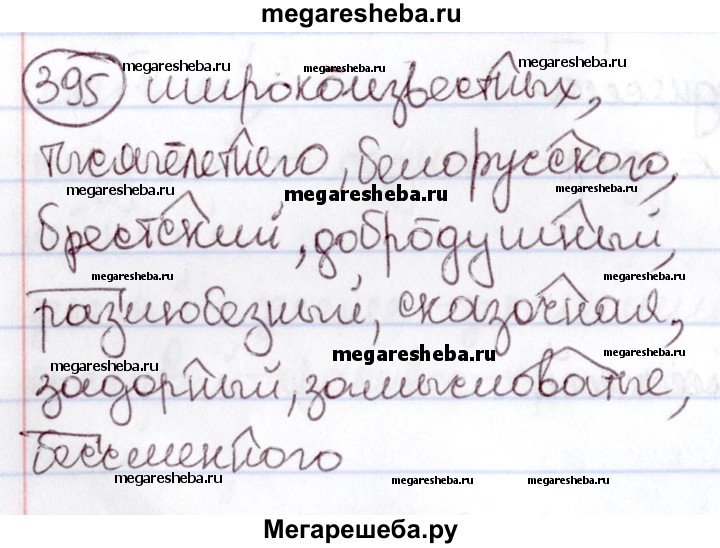 megaresheba.ru
megaresheba.ru megaresheba.ru megaresheba.ru
395 широкоизвестных,
тысячелетнего, белорусского,
megaresheba.ru megaresheba.ru
megaresheba.ru
брестский, добродушный,
megaresheba.ru megaresheba.ru megaresheba.ru
разлюбезный, сказочная,
megaresheba.ru
megaresheba.ru megaresheba.ru
задорный, замысловатые,
бессменного
megaresheba.ru megaresheba.ru megaresheba.ru
Мегарешеба.ру